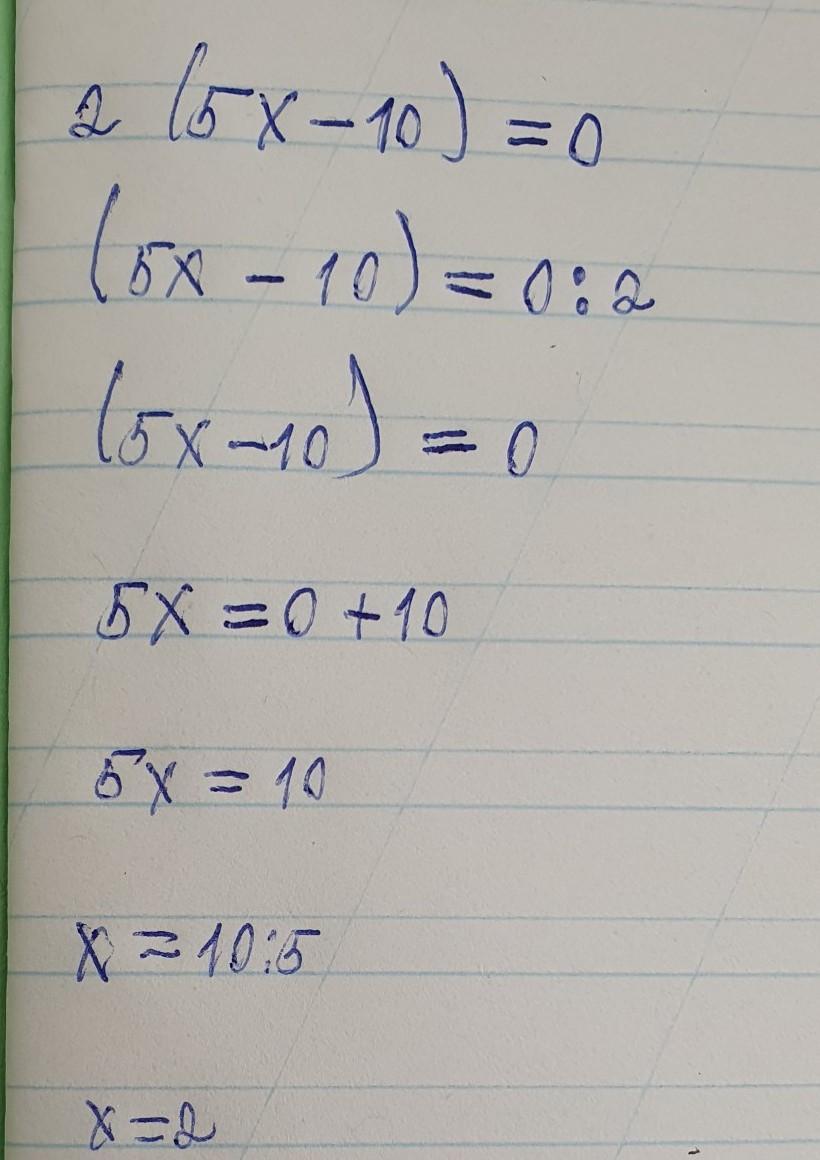 2 (5x-10) = 0
(5x - 10) = 0:2
(5x-10) = 0
5x = 0 +10
5x = 10
x = 10:5
x = 2